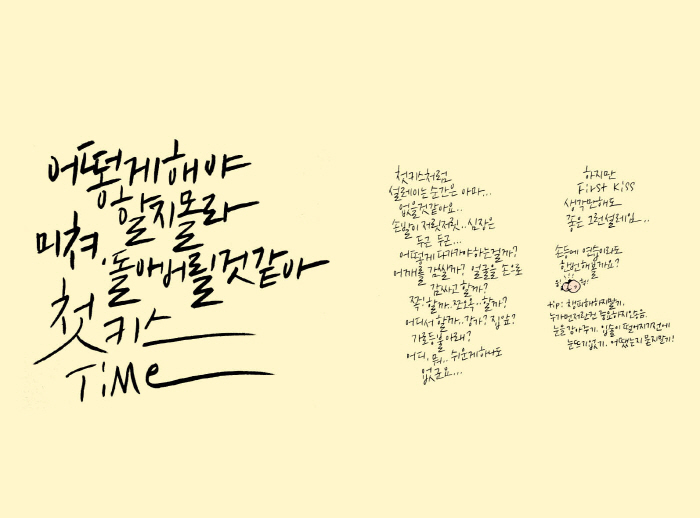 어떻게해야
할지몰라
미쳐.돌아버릴것같아
첫키스
TiMe
첫키스처럼
설레이는 순간은 아마...
없을것같아요..
손발이 저릿저릿..심장은
두근 두근...
어떻게 다가가야하는걸까?
어깨를 감쌀까? 얼굴을 손으로
감싸고 할까?
쪽!할까..쪼오옥..할까?
어디서 할까..강가? 집앞?
가로등불아래?
어디, 뭐.. 쉬운게 하나도
없군요...
하지만
First Kiss
생각만해도
좋은 그런설레임...
손등에 연습이라도
한번해볼까요?
tip: 창피해하지말기.
누가먼저란건 중요하지않음.
눈을감아주기. 입술이 떨어지기전에
눈뜨기없기. 어땠는지 묻지말기!